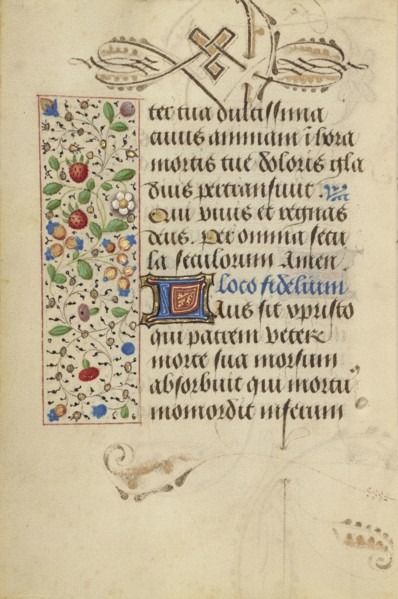 ter tua dulcissima
cuius animam ī hora
mortis tue doloris gla
dius pertransiuit.
Qui viuis et regnas
deus. Per omnia secu
la seculorum Amen.
loco fidelium
Laus sit xpristo
qui patrem veterē
morte sua morsum
absorbuit qui mortu
momordit inferum